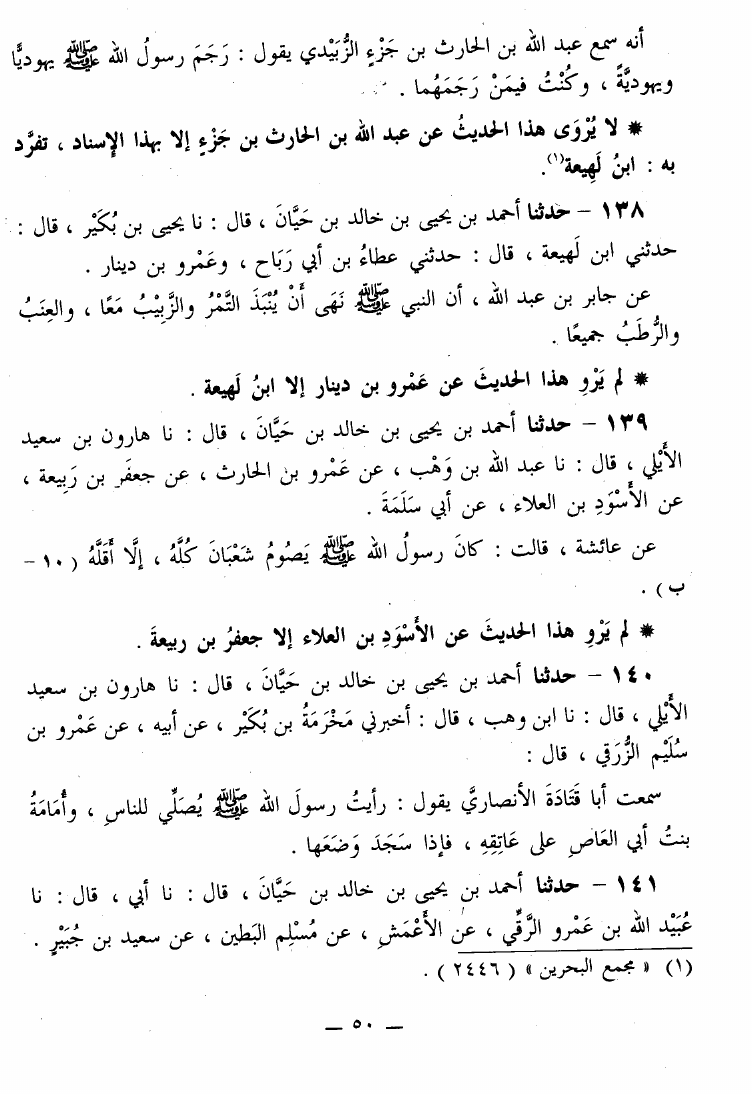 أنه سمع عبد الله بن الحارث بن جَزْءٍ الزُّبَيْدي يقول : رَجَمَ رسولُ الله ﷺ يهوديًّا
ويهوديَّةً ، وكُنْتُ فيمَنْ رَجَمَهُما .
* لا يُرْوَى هذا الحديثُ عن عبد الله بن الحارث بن جَزْءٍ إلا بهذا الإسناد ، تفرَّد
به : ابنُ لَهِيعة(١).
١٣٨ – حدثنا أحمد بن يحيى بن خالد بن حَيَّانَ ، قال : نا يحيى بن بُكَيْر ، قال :
حدثني ابن لَهيعة ، قال : حدثني عطاءُ بن أبي رَبَاح ، وعَمْرو بن دينار .
عن جابر بن عبد الله ، أن النبي ﷺ نَهَى أَنْ يُنْبَذَ التَّمْرُ والزَّبِيْبُ مَعًا ، والعِنَبُ
والرُّطَبُ جميعًا .
* لم يَرْوِ هذا الحديثَ عن عَمْرو بن دينار إلا ابنُ لَهيعة .
١٣٩ – حدثنا أحمد بن يحيى بن خالد بن حَيَّانَ ، قال : نا هارون بن سعيد
الأَيْلي ، قال : نا عبد الله بن وَهْب ، عن عَمْرو بن الحارث ، عن جعفَر بن رَبِيعة ،
عن الأَسْوَدِ بن العلاء ، عن أبي سَلَمَةَ .
عن عائشة ، قالت : كانَ رسولُ الله ﷺ يَصُومُ شَعْبَانَ كُلَّهُ ، إلَّا أَقَلَّهُ ( ١٠ –
ب ) .
* لم يَرْوِ هذا الحديثَ عن الأَسْوَدِ بن العلاء إلا جعفرُ بن ربيعةَ .
١٤٠ – حدثنا أحمد بن يحيى بن خالد بن حَيَّانَ ، قال : نا هارون بن سعيد
الأَيْلي ، قال : نا ابن وهب ، قال : أخبرني مَخْرَمَةُ بن بُكَيْر ، عن أبيه ، عن عَمْرو بن
سُلَيْم الزُّرَقي ، قال :
سمعت أبا قَتَادَةَ الأنصاريَّ يقول : رأيتُ رسولَ الله ﷺ يُصَلِّي للناسِ ، وأُمَامَةُ
بنتُ أبي العَاصِ على عَاتِقِهِ ، فإذا سَجَدَ وَضَعَها .
١٤١ – حدثنا أحمد بن يحيى بن خالد بن حَيَّانَ ، قال : نا أبي ، قال : نا
عُبَيْد الله بن عَمْرو الرَّقِّي ، عن الأَعْمَشِ ، عن مُسْلِم البَطين ، عن سعيد بن جُبَيْرٍ .
(١) « مجمع البحرين » ( ٢٤٤٦ ) .
— ٥٠ —